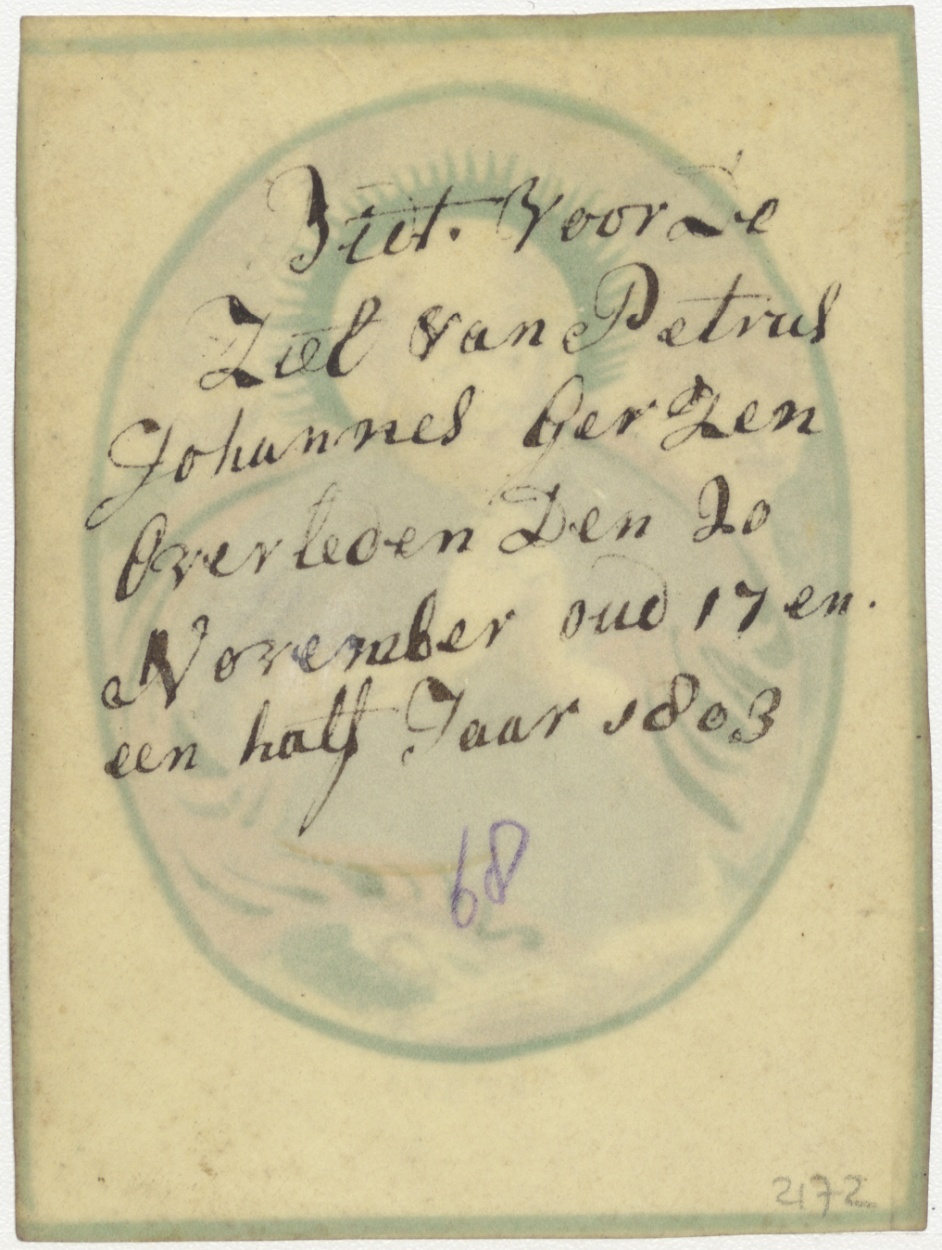 Biet. Voor De
Ziel van Petrus
Johannes Gerzen
Overleden Den 20
November oud 17 en.
een half Jaar 1803
68
2172